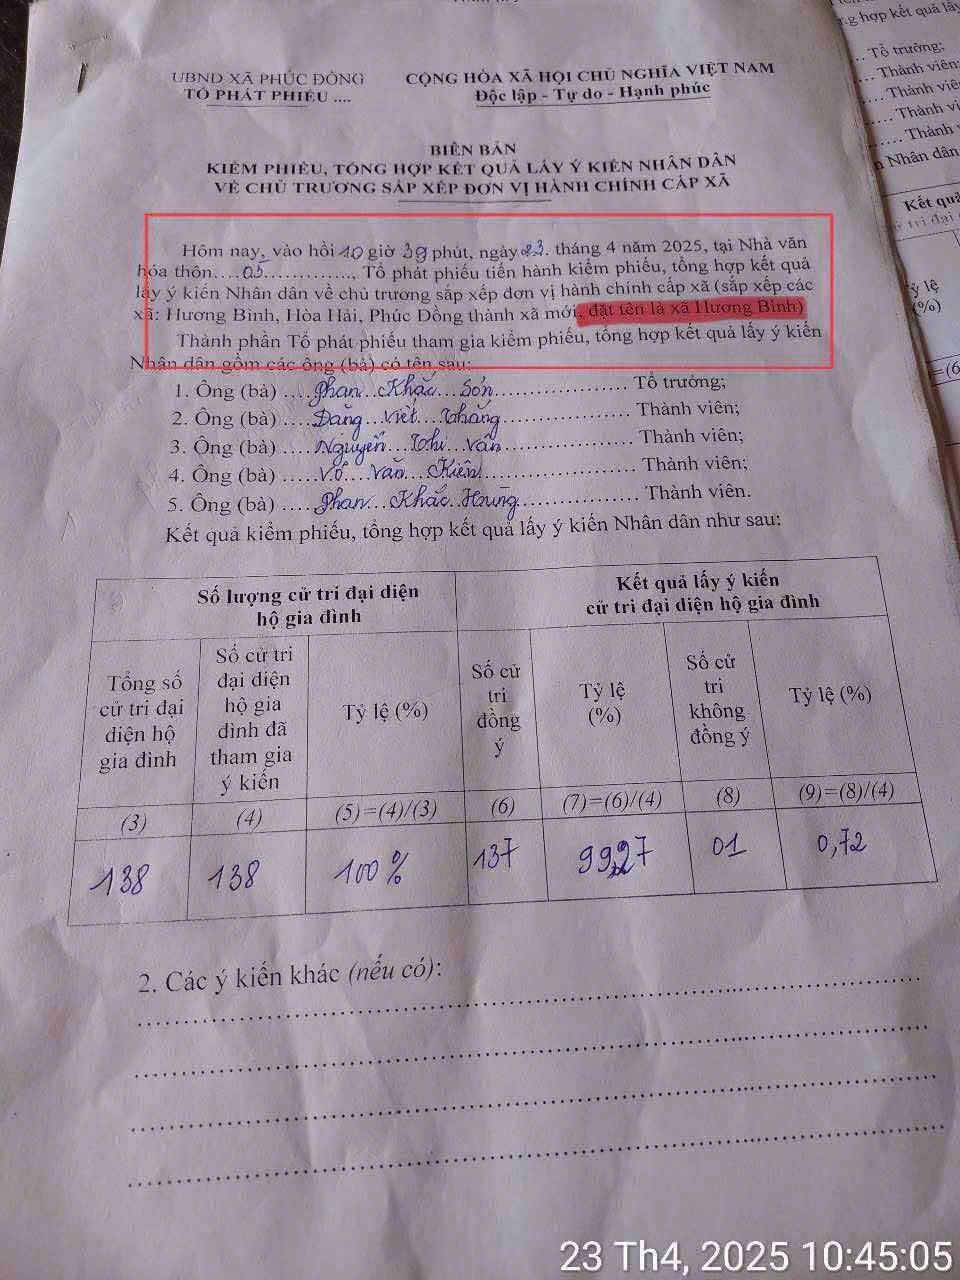 UBND XÃ PHÚC ĐỒNG
TỔ PHÁT PHIẾU ....
CỘNG HÒA XÃ HỘI CHỦ NGHĨA VIỆT NAM
Độc lập - Tự do - Hạnh phúc
BIÊN BẢN
KIỂM PHIẾU, TỔNG HỢP KẾT QUẢ LẤY Ý KIẾN NHÂN DÂN
VỀ CHỦ TRƯƠNG SẮP XẾP ĐƠN VỊ HÀNH CHÍNH CẤP XÃ
Hôm nay, vào hồi 10 giờ 39 phút, ngày 23. tháng 4 năm 2025, tại Nhà văn
hóa thôn....05..............., Tổ phát phiếu tiến hành kiểm phiếu, tổng hợp kết quả
lấy ý kiến Nhân dân về chủ trương sắp xếp đơn vị hành chính cấp xã (sắp xếp các
xã: Hương Bình, Hòa Hải, Phúc Đồng thành xã mới, đặt tên là xã Hương Bình)
Thành phần Tổ phát phiếu tham gia kiểm phiếu, tổng hợp kết quả lấy ý kiến
Nhân dân gồm các ông (bà) có tên sau:
1. Ông (bà) ....Phan...Khắc...Sơn...................... Tổ trưởng;
2. Ông (bà) ....Đặng...Viết...Thắng..................... Thành viên;
3. Ông (bà) ....Nguyễn...Thị...Vân..................... Thành viên;
4. Ông (bà) .....Võ....Văn...Kiên....................... Thành viên;
5. Ông (bà) .....Phan...Khắc...Hùng.................... Thành viên.
Kết quả kiểm phiếu, tổng hợp kết quả lấy ý kiến Nhân dân như sau:
Số lượng cử tri đại diện
hộ gia đình
Kết quả lấy ý kiến
cử tri đại diện hộ gia đình
Tổng số
cử tri đại
diện hộ
gia đình
Số cử tri
đại diện
hộ gia
đình đã
tham gia
ý kiến
Tỷ lệ (%)
Số cử
tri
đồng
ý
Tỷ lệ
(%)
Số cử
tri
không
đồng ý
Tỷ lệ (%)
(3) (4) (5)=(4)/(3) (6) (7)=(6)/(4) (8) (9)=(8)/(4)
138 138 100 % 137 99,27 01 0,72
2. Các ý kiến khác (nếu có):
g hợp kết quả lấy
Tổ trưởng;
Thành viên
Thành viên
Thành vi
Thành
Nhân dân
Kết quả
tri đại
ỷ lệ
(%)
=(6
23 Th4, 2025 10:45:05